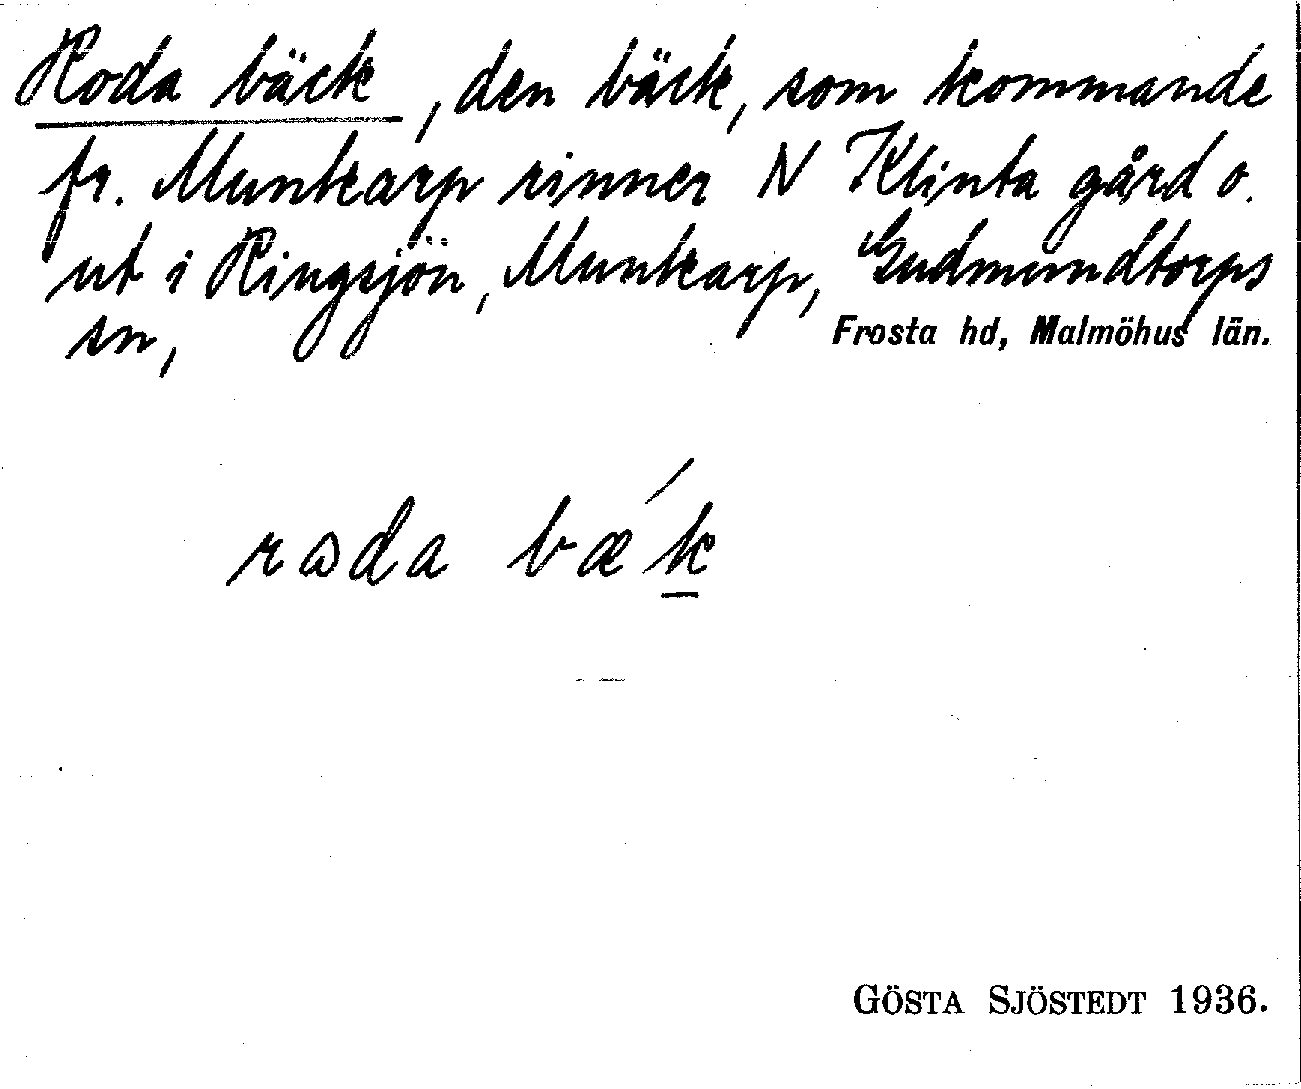 Roda bäck, den bäck, som kommande
fr. Munkarp rinner N Klinta gård o.
ut i Ringsjön, Munkarp, Gudmundtorps
sn, Frosta hd, Malmöhus län.
rɷda bæ´k
GÖSTA SJÖSTEDT 1936.